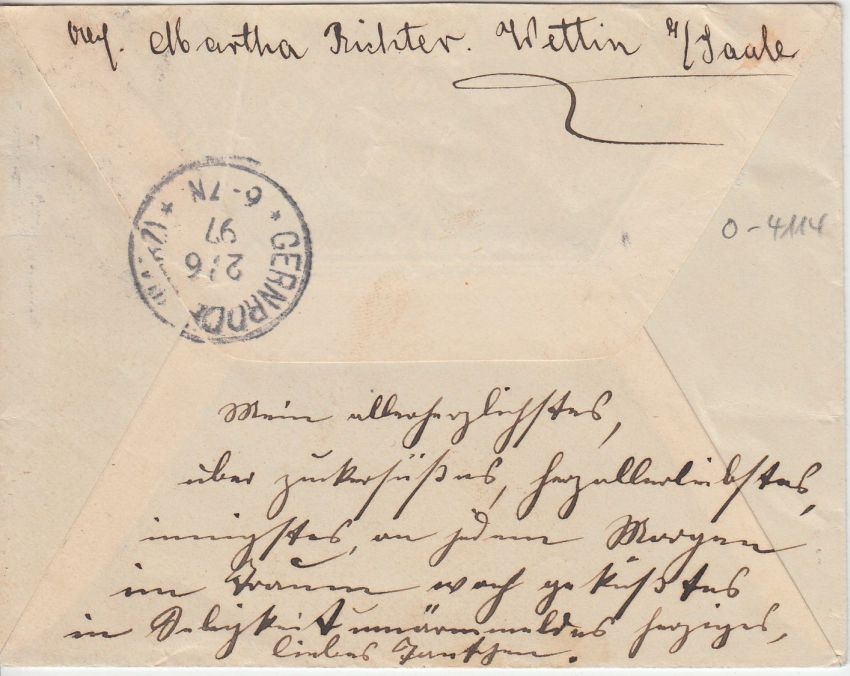 Martha Richter. Wettin a/Saale
GERNRODE
* 6-7N. *
2/6
97
O-4114
Mein allerherzlichstes,
über zuckersüßes, herzallerliebstes,
innigstes, an jedem Morgen
im Traum wach geküßtes
in Seligkeit herziges,
liebes